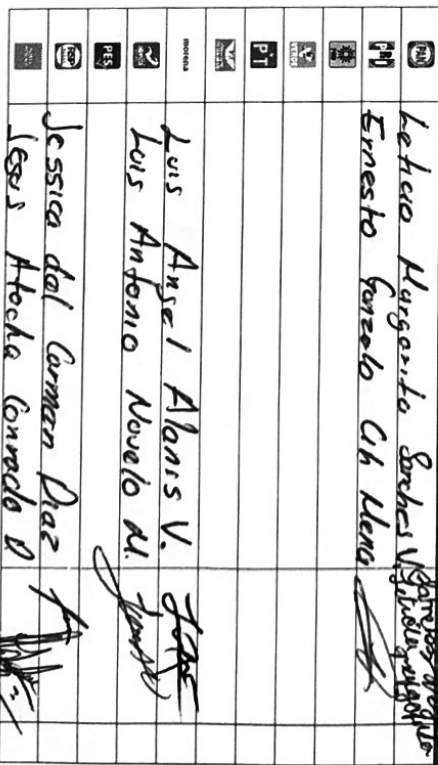 PAN Leticia Margarita Sanches V.
PRI Ernesto Gonzalo Uh Mena
VERDE
PT
morena Luis Angel Alanis V.
Luis Antonio Novelo M.
PES
RSP Jessica del Carmen Diaz
Jesus Atocha Conrado D